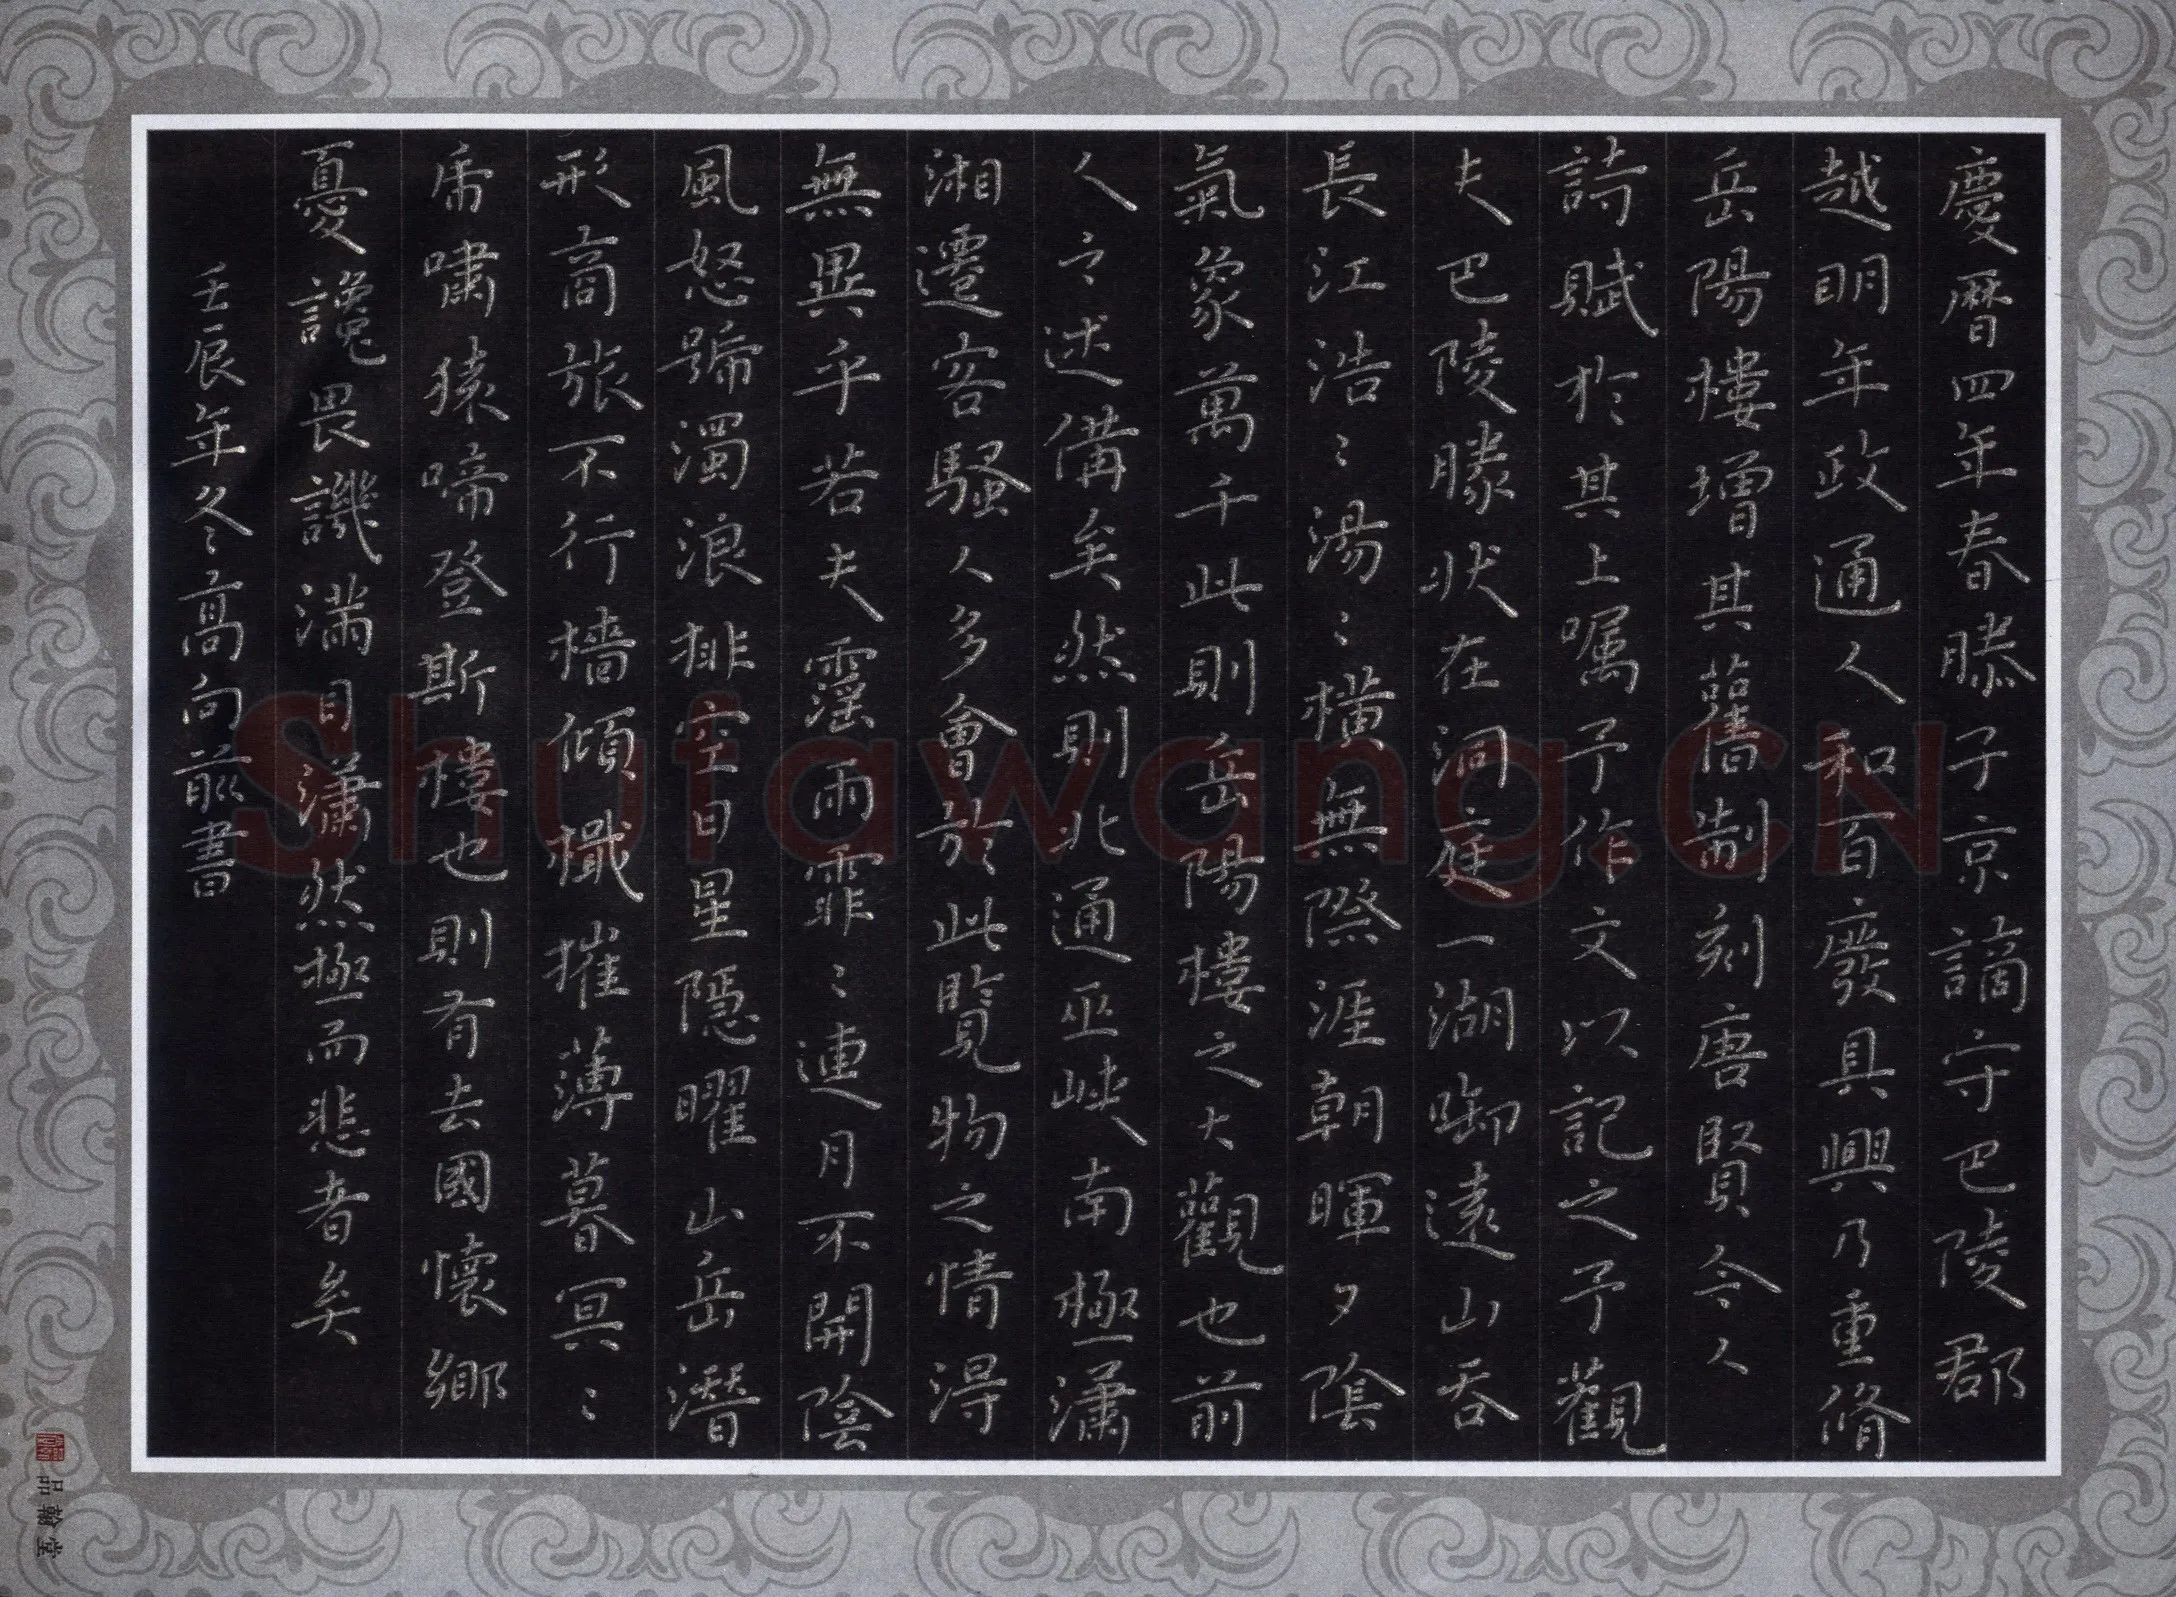 慶曆四年春滕子京謫守巴陵郡
越明年政通人和百廢具興乃重脩
岳陽樓增其舊制刻唐賢今人
詩賦於其上嘱予作文以記之予觀
夫巴陵勝状在洞庭一湖啣遠山吞
長江浩〻湯〻橫無際涯朝暉夕陰
氣象萬千此則岳陽樓之大觀也前
人之述備矣然則北通巫峡南極瀟
湘遷客騷人多會於此覽物之情得
無異乎若夫霪雨霏〻連月不開陰
風怒號濁浪排空日星隱曜山岳潛
形商旅不行檣傾檝摧薄暮冥〻
乕嘯猿啼登斯樓也則有去國懷鄉
憂讒畏譏滿目瀟然極而悲者矣
壬辰年冬高向前書
品翰堂
Shufawang.CN